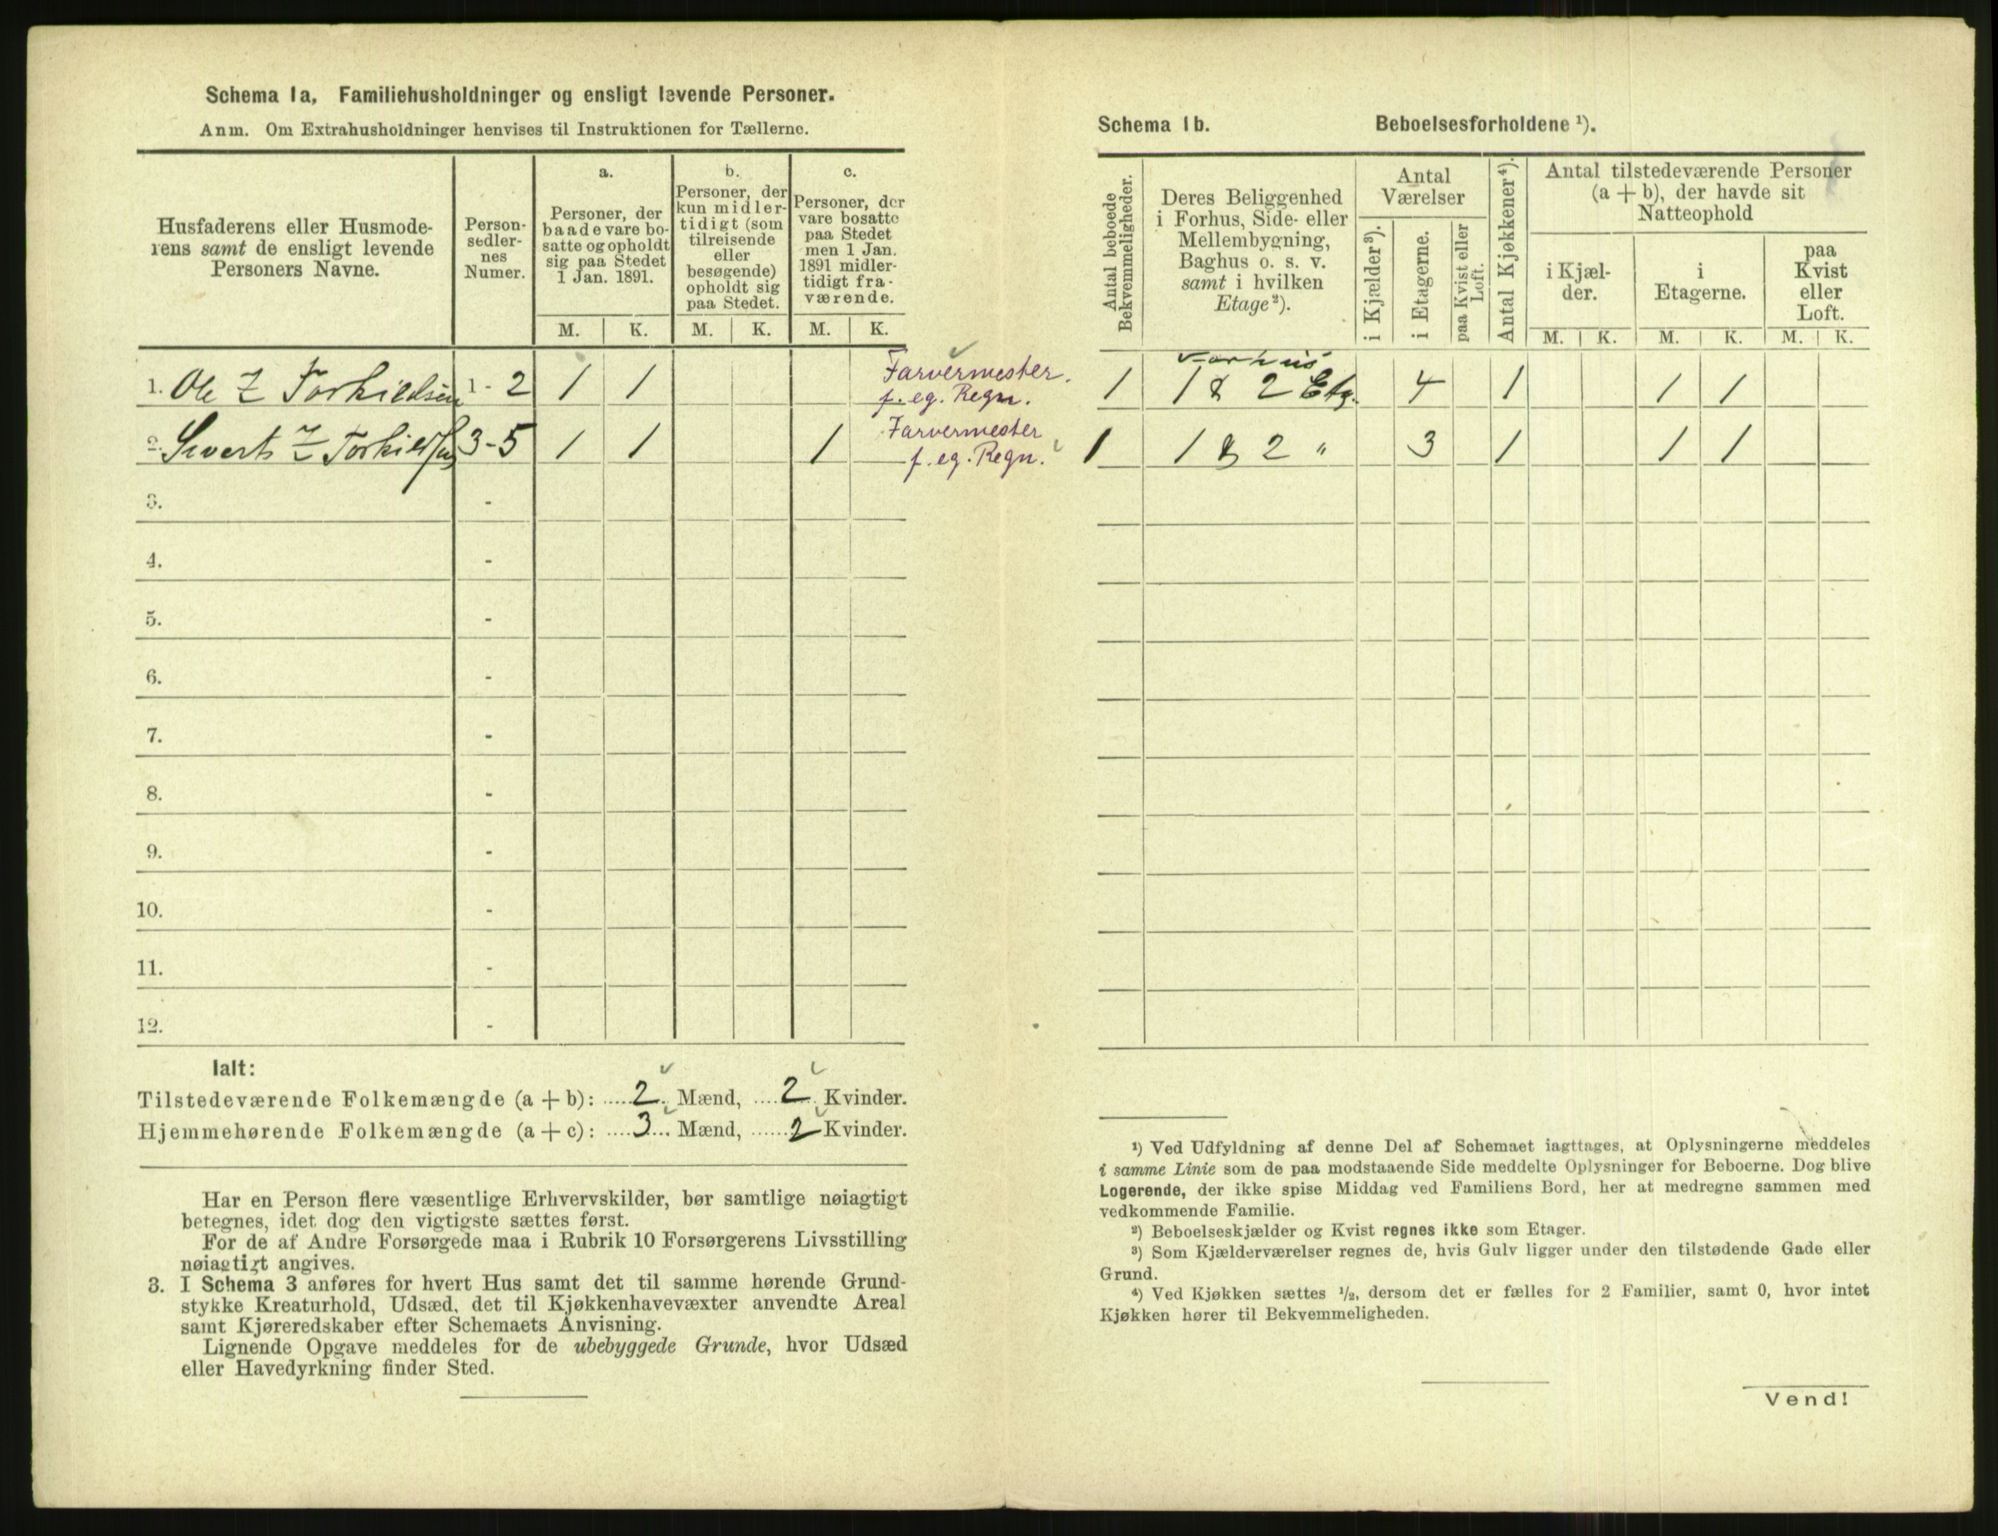 Schema 1a, Familiehusholdninger og ensligt levende Personer.
Anm. Om Extrahusholdninger henvises til Instruktionen for Tællerne.
Husfaderens eller Husmode-
rens samt de ensligt levende
Personers Navne.
Person-
sedler-
nes
Numer.
a.
Personer, der
baade vare bo-
satte og opholdt
sig paa Stedet
1 Jan. 1891.
b.
Personer, der
kun midler-
tidigt (som
tilreisende
eller
besøgende)
opholdt sig
paa Stedet.
c.
Personer, der
vare bosatte
paa Stedet
men 1 Jan.
1891 midler-
tidigt fra-
værende.
M. K. M. K. M. K.
1. Ole Z Torkildsen 1 - 2 1 1 Farvermester f. eg. Regn.
2. Sivert Z Torkildsen 3 - 5 1 1 1 Farvermester f. eg. Regn.
3. -
4. -
5. -
6. -
7. -
8. -
9. -
10. -
11. -
12. -
Ialt:
Tilstedeværende Folkemængde (a + b): 2 Mænd, 2 Kvinder.
Hjemmehørende Folkemængde (a + c): 3 Mænd, 2 Kvinder.
Har en Person flere væsentlige Erhvervskilder, bør samtlige nøiagtigt
betegnes, idet dog den vigtigste sættes først.
For de af Andre Forsørgede maa i Rubrik 10 Forsørgerens Livsstilling
nøiagtigt angives.
3. I Schema 3 anføres for hvert Hus samt det til samme hørende Grund-
stykke Kreaturhold, Udsæd, det til Kjøkkenhavevæxter anvendte Areal
samt Kjøreredskaber efter Schemaets Anvisning.
Lignende Opgave meddeles for de ubebyggede Grunde, hvor Udsæd
eller Havedyrkning finder Sted.
Schema 1b. Beboelsesforholdene ¹).
Antal beboede
Bekvemmeligheder.
Deres Beliggenhed
i Forhus, Side- eller
Mellembygning,
Baghus o. s. v.
samt i hvilken
Etage²).
Antal
Værelser
i Kjælder³).
i Etagerne.
paa Kvist eller
Loft.
Antal Kjøkkener⁴).
Antal tilstedeværende Personer
(a + b), der havde sit
Natteophold
i Kjæl-
der.
i
Etagerne.
paa
Kvist
eller
Loft.
M. K. M. K. M. K.
Vorhus
1 1 & 2 Etg. 4 1 1 1
1 1 & 2 " 3 1 1 1
¹) Ved Udfyldning af denne Del af Schemaet iagttages, at Oplysningerne meddeles
i samme Linie som de paa modstaaende Side meddelte Oplysninger for Beboerne. Dog blive
Logerende, der ikke spise Middag ved Familiens Bord, her at medregne sammen med
vedkommende Familie.
²) Beboelseskjælder og Kvist regnes ikke som Etager.
³) Som Kjælderværelser regnes de, hvis Gulv ligger under den tilstødende Gade eller
Grund.
⁴) Ved Kjøkken sættes ½, dersom det er fælles for 2 Familier, samt 0, hvor intet
Kjøkken hører til Bekvemmeligheden.
Vend!